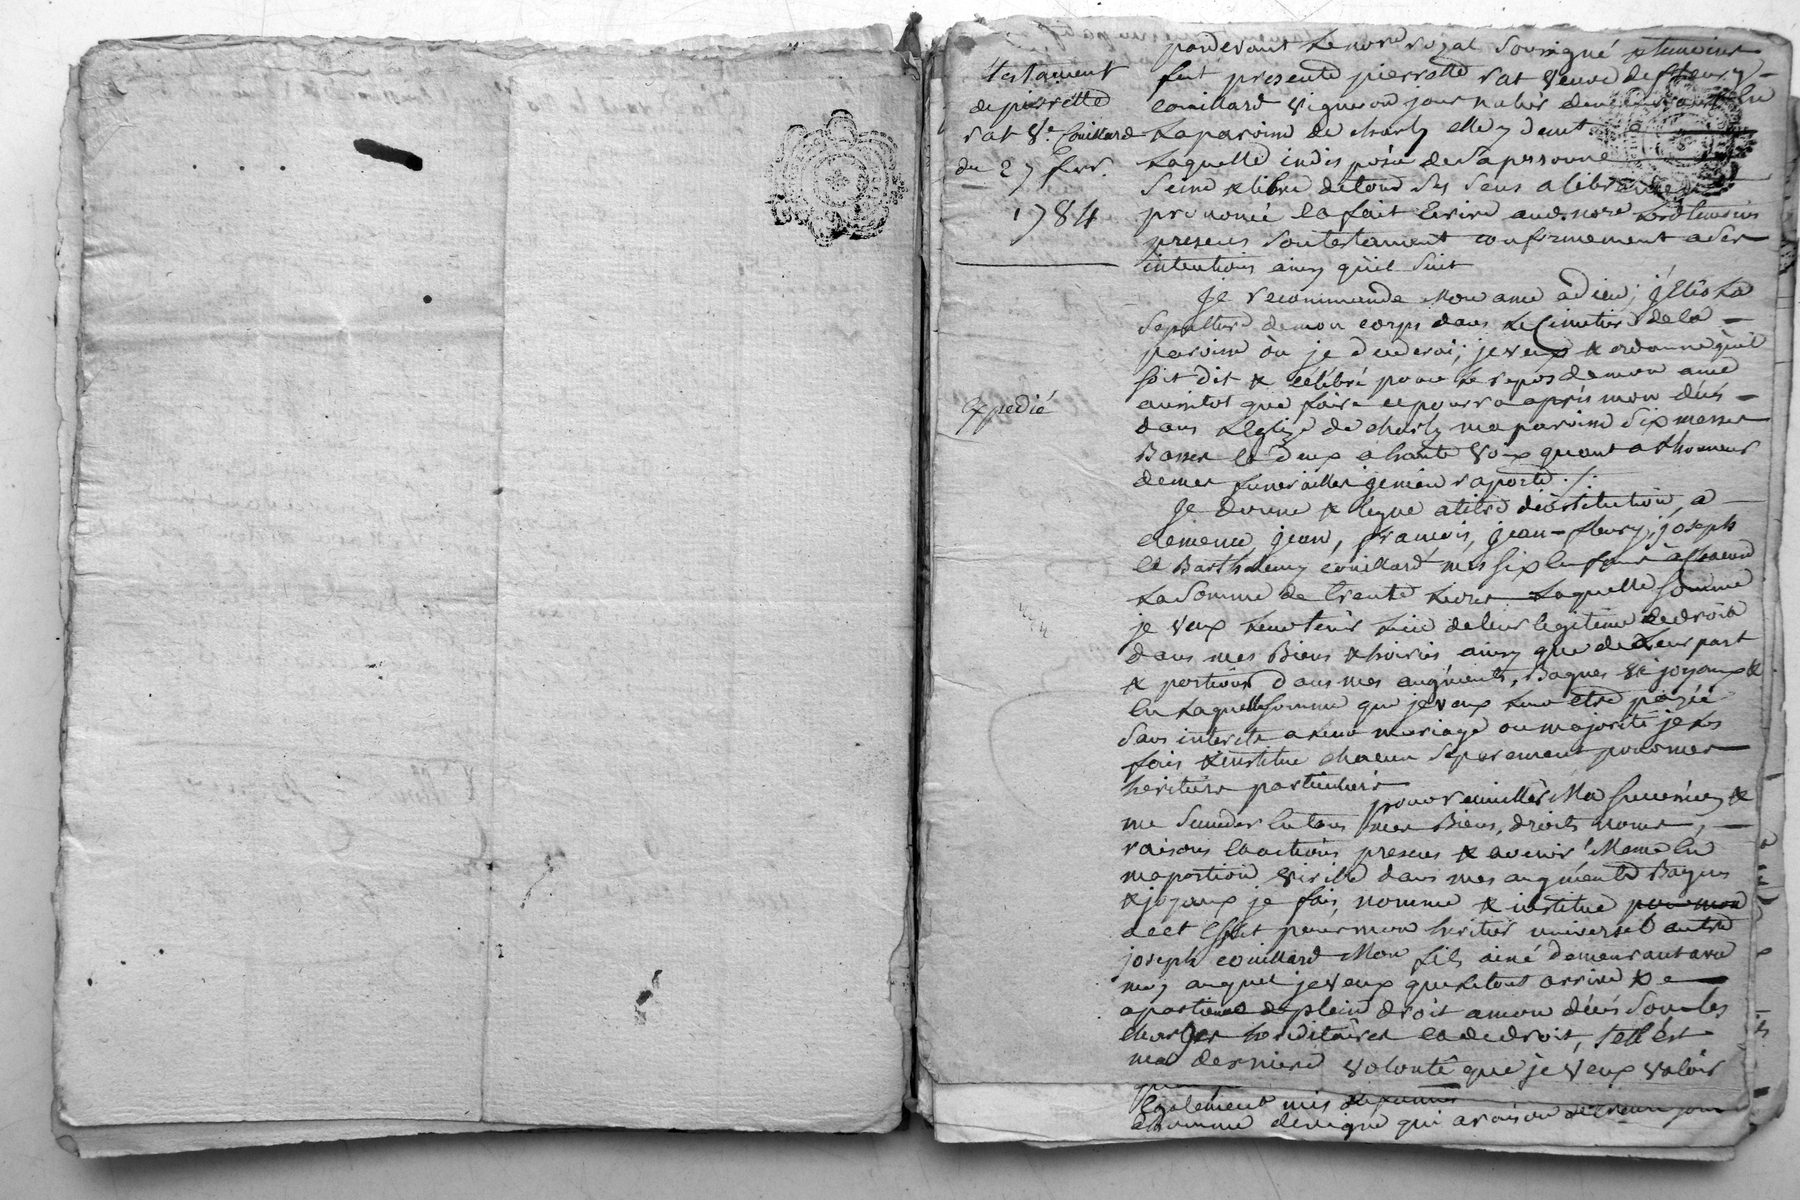 testament
de pierrette
rat Ve. Couillard
du 27 fevr.
1784
Expedié
pardevant Le nore royal Soussigné &temoins
fut presente pierrette rat veuve de fleury
couillard vigneron journalier demeurant en
La paroisse de charly elle y deint
Laquelle indisposée de Sa personne
Seine & libre de tous Ses Sens a libre
prononcé la fait Ecrire aud. nore
presens Son testament conformement a Ses
intentions ainsy qu'il Suit
Je recommande Mon ame a dieu; j'Elis La
Sepulture de mon corps dans Le Cimetiere de la
paroisse où je decederai; je veux & ordonne qu'il
soit dit & célébré pour Le repos de mon ame
aussitot que faire ce pourra après mon décès
dans L'eglize de charly ma paroisse Six messes
Basses et deux a haute voix quant a Lhonneur
de mes funerailles je m'en raporte ./.
Je donne & legue a titre d'institution, a
clemence, jean, francois, jean-fleury, joseph
et Barthelemy couillard mes six enfans a chacun
La Somme de trente Livres Laquelle Somme
je veux Leur tenir Lieu de leur legitime de droit
dans mes Biens & hoiries ainsy que de Leur part
& portions dans mes augments, Bagues & joyaux &
en Laquelle Somme que je veux Leur etre payée
Sans interets a Leur mariage ou majorité je Les
fais & institue chacun Separement pour mes
heritiers particuliers
pour recueiller Ma Succession &
me Succeder En tous mes Biens, droits noms,
raisons Et actions presens & avenir Meme En
ma portion virille dans mes augments Bagues
& joyaux je fais, nomme & institue pour mon
a cet Effet pour mon heritier universel autre
joseph couillard Mon fils ainé demeurant avec
moy auquel je veux que Le tout arrive &
apartienne de plein droit a mon décès Sous les
charges hereditaires et de droit, tell'est
ma derniere volonté que je veux valoir
Egalement mis
homme de vigne qui a raison